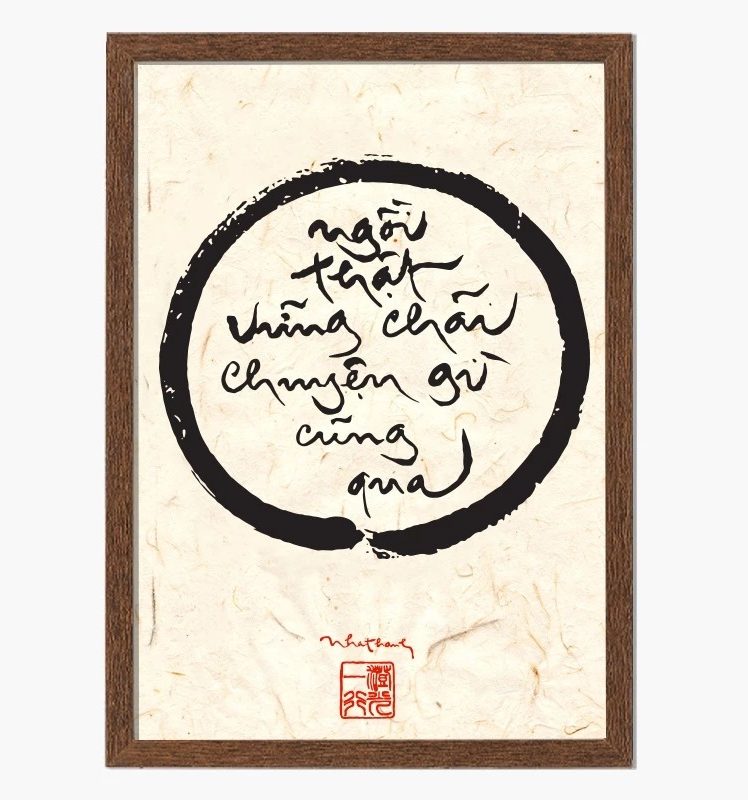 ngồi
thật
vững chãi
chuyện gì
cũng
qua
nhathanh
澄光
一行